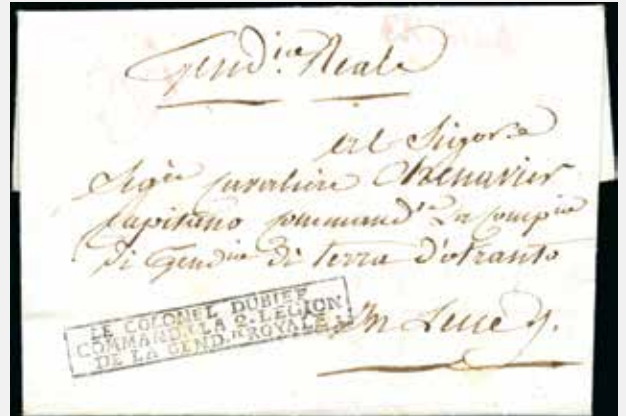 Gend.ria Reale
Al Sigor.e
Sig.re Cavaliere Chenavier
Capitano Command.te la comp.ia
di Gend.ia di terra d'otranto
In Lecce
LE COLONEL DUBIEF
COMMAND. LA 2. LEGION
DE LA GEND.IE ROYALE